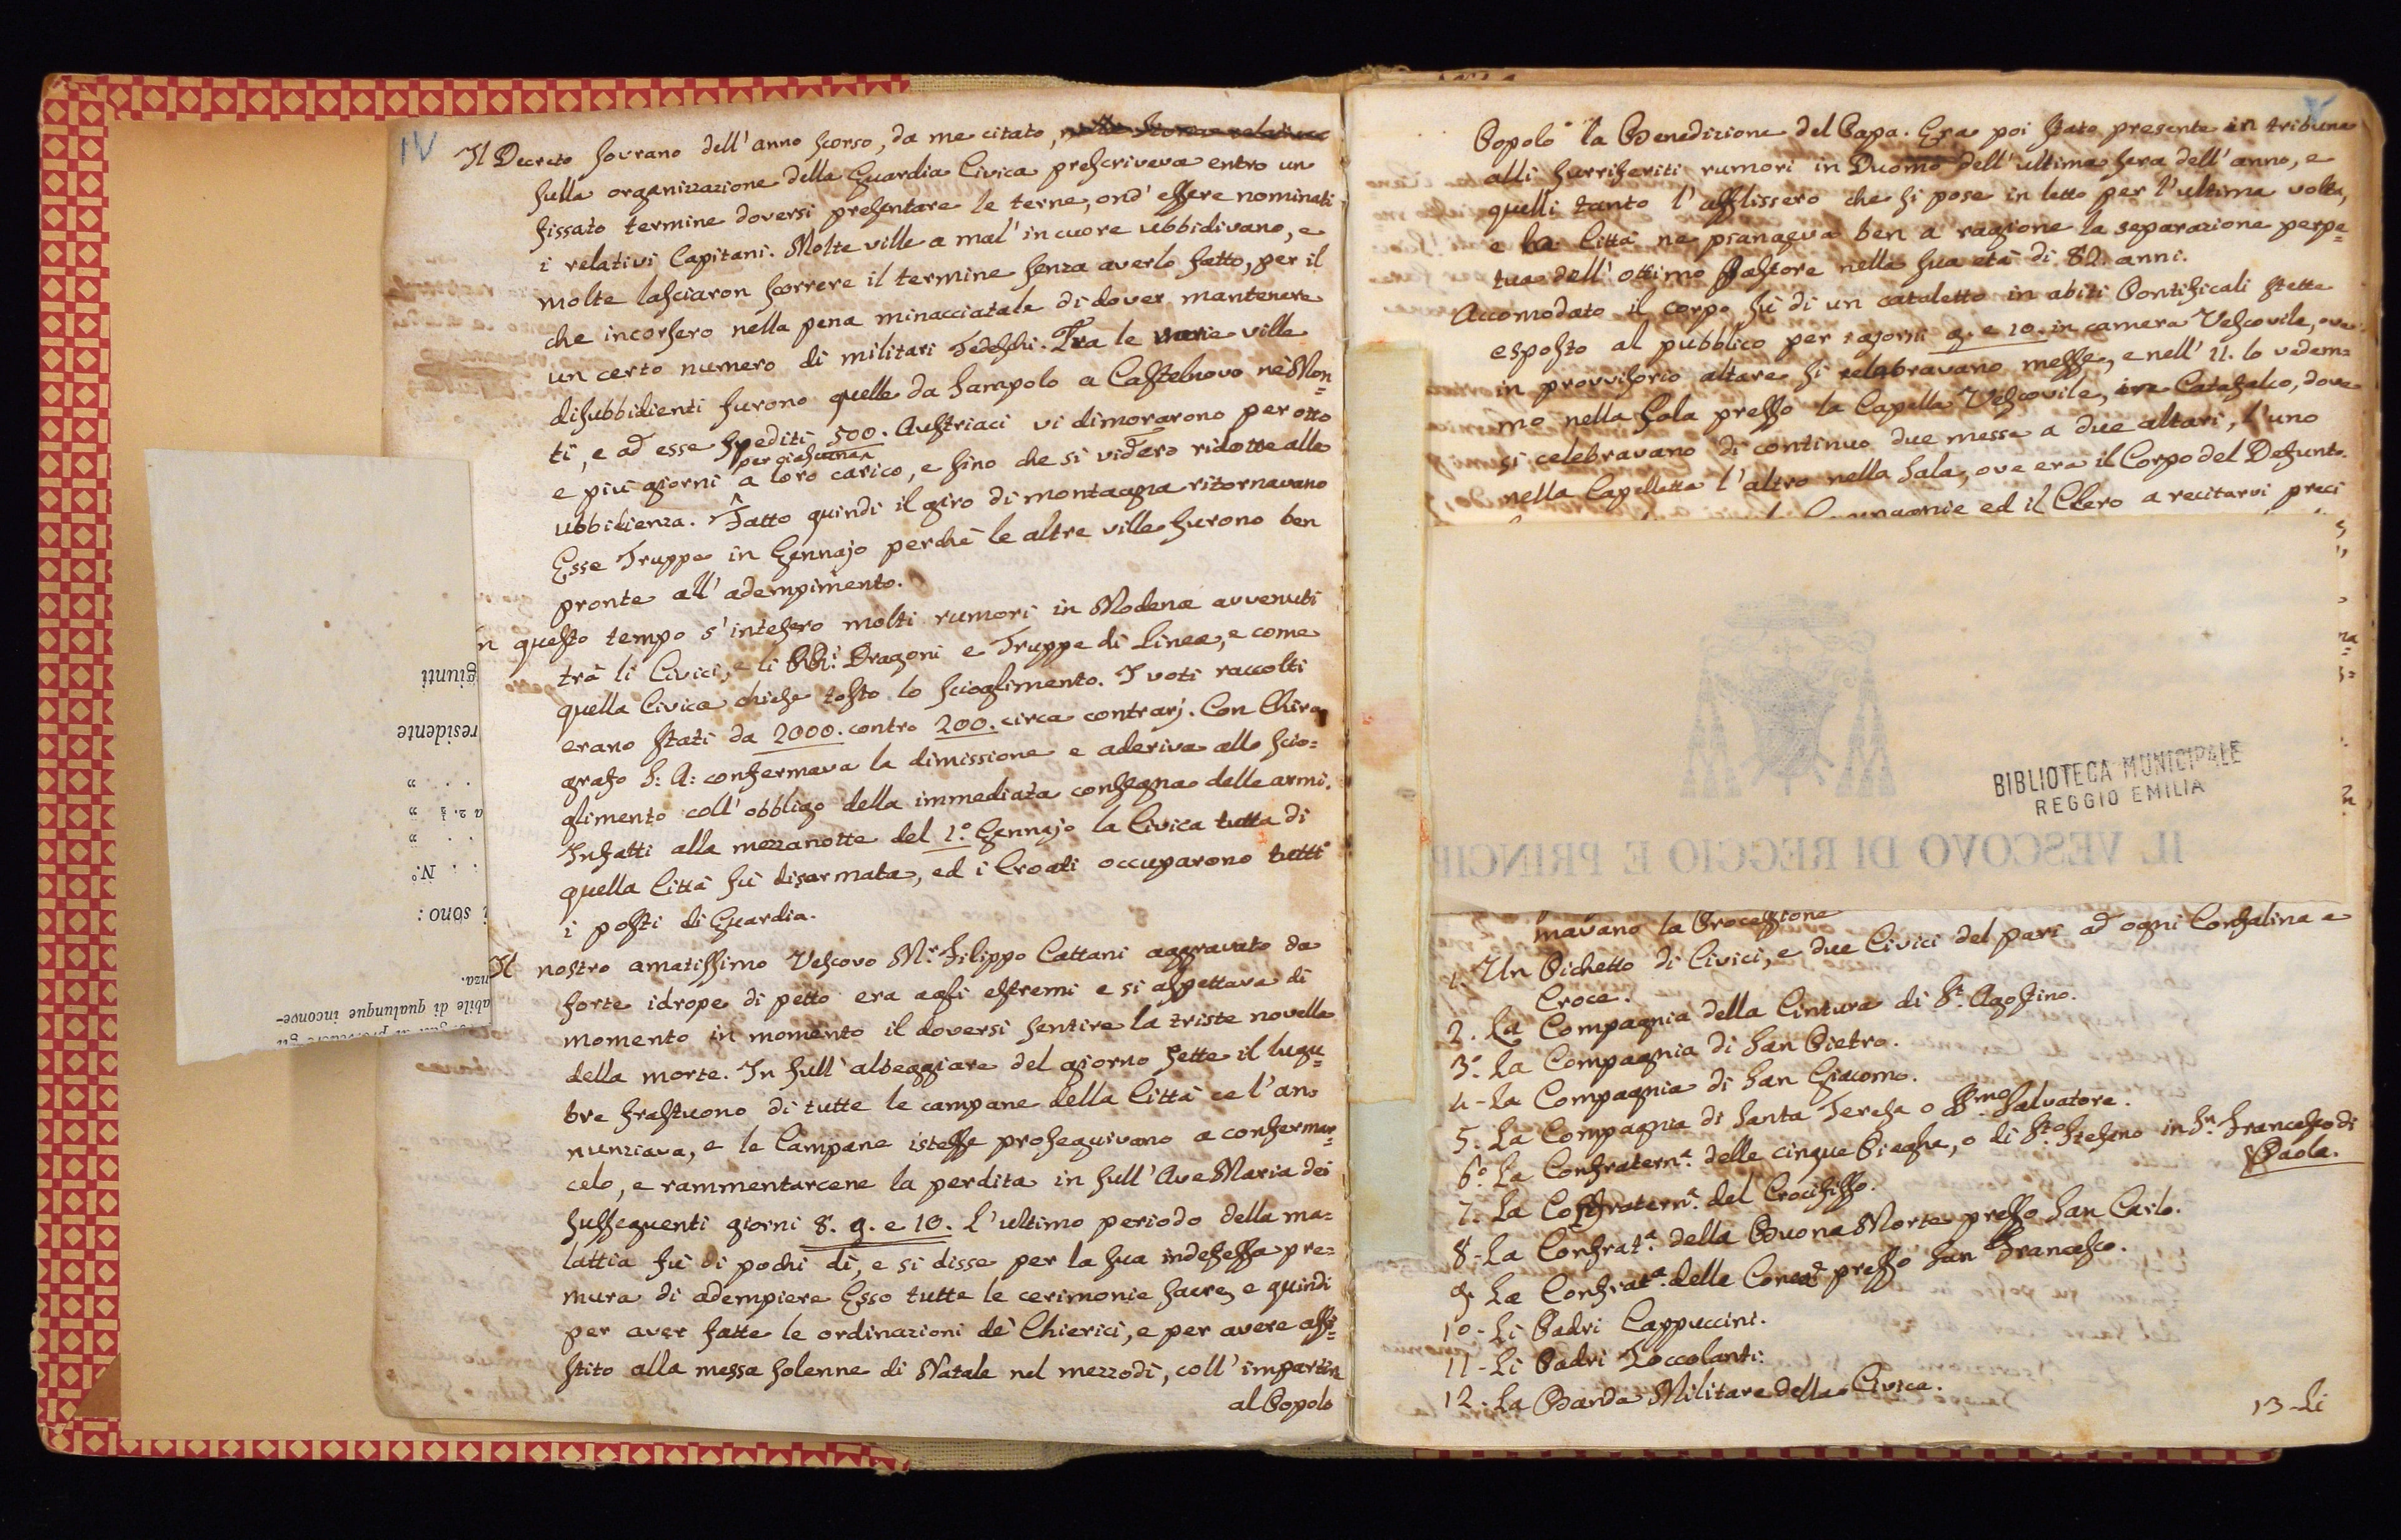 IV
Il Decreto sovrano dell'anno scorso, da me citato,
sulla organizzazione della Guardia Civica prescriveva entro un
fissato termine doversi presentare le terne, ond'essere nominati
i relativi Capitani. Molte ville a mal'in cuore ubbidivano, e
molte lasciaron scorrere il termine senza averlo fatto, per il
che incorsero nella pena minacciatale di dover mantenere
un certo numero di militari Tedeschi. Tra le varie ville
disubbidienti furono quelle da Sampolo a Castelnovo nè Mon=
ti, e ad esse spediti 500. Austriaci vi dimorarono per otto
per ciascuna
e più giorni a loro carico, e fino che si videro ridotte alle
ubbidienza. Fatto quindi il giro di montagna ritornavano
Esse Truppe in Gennajo perchè le altre ville furono ben
pronte all'adempimento.
n questo tempo s'intesero molti rumori in Modena avvenuti
trà li Civici, e li RR.i Dragoni e Truppe di Linea, e come
quella Civica chiese tosto lo scioglimento. I voti raccolti
erano stati da 2000. contro 200. circa contrarj. Con Chiro
grafo S: A: confermava la dimissione e aderiva allo scio=
glimento coll'obbligo della immediata consegna delle armi.
Infatti alla mezzanotte del 1.o Gennajo la Civica tutta di
quella Città fù disarmata, ed i Croati occuparono tutti
i posti di Guardia.
Il nostro amatissimo Vescovo M.r Filippo Cattani aggravato da
forte idrope di petto era agli estremi e si aspettava di
momento in momento il doversi sentire la triste novella
della morte. In sull'albeggiare del giorno sette il lugu=
bre frastuono di tutte le campane della Città ce l'an=
nunziava, e le Campane istesse proseguivano a confermar=
celo, e rammentarcene la perdita in sull'Ave Maria dei
susseguenti giorni 8. 9. e 10. L'ultimo periodo della ma=
lattia fù di pochi dì, e si disse per la sua indefessa pre=
mura di adempiere Esso tutte le cerimonie sacre, e quindi
per aver fatte le ordinazioni de' Chierici, e per avere assi=
stito alla messa solenne di Natale nel mezzodì, coll'impartire
al Popolo
giunti
residente
. . "
a 2. "
. . "
. . N.o
i sono :
nza.
abile di qualunque inconve-
Popolo la Benedizione del Papa. Era poi stato presente in tribuna
alli surriferiti rumori in Duomo dell'ultima sera dell'anno, e
quelli tanto l'afflissero che si pose in letto per l'ultima volta,
e la Città ne piangeva ben a ragione la separazione perpe=
tua dell'ottimo Pastore nella sua età di 82. anni.
Accomodato il corpo sù di un cataletto in abiti Pontificali stette
esposto al pubblico per i giorni 9. e 10. in camera Vescovile, ove
in provvisorio altare si celebravano messe, e nell'11. lo vedem=
mo nella Sala presso la Capella Vescovile, in Catafalco, dove
si celebravano di continuo due messe a due altari, l'uno
nella Capelletta l'altro nella Sala, ove era il Corpo del Defunto.
Compagnie ed il Clero a recitarvi preci
BIBLIOTECA MUNICIPALE
REGGIO EMILIA
IL VESCOVO DI REGGIO E PRINCIP
mavano la Processione
1. Un Pichetto di Civici, e due Civici del pari ad ogni Confalina e
Croce.
2. La Compagnia della Cintura di S.t Agostino.
3.o La Compagnia di San Pietro.
4 - La Compagnia di San Giacomo.
5. La Compagnia di Santa Teresa o SS.mo Salvatore.
6.o La Confratern.a delle cinque Pieghe, o di S.to Stefano in S.n Francesco di
Paola.
7. La Confratern.a del Crocifisso.
8 - La Confrat.a della Buona Morte presso San Carlo.
9. La Confrat.a della Concez.e presso San Francesco.
10 - Li Padri Cappuccini.
11 - Li Padri Zoccolanti.
12 - La Banda Militare della Civica.
13 - Li